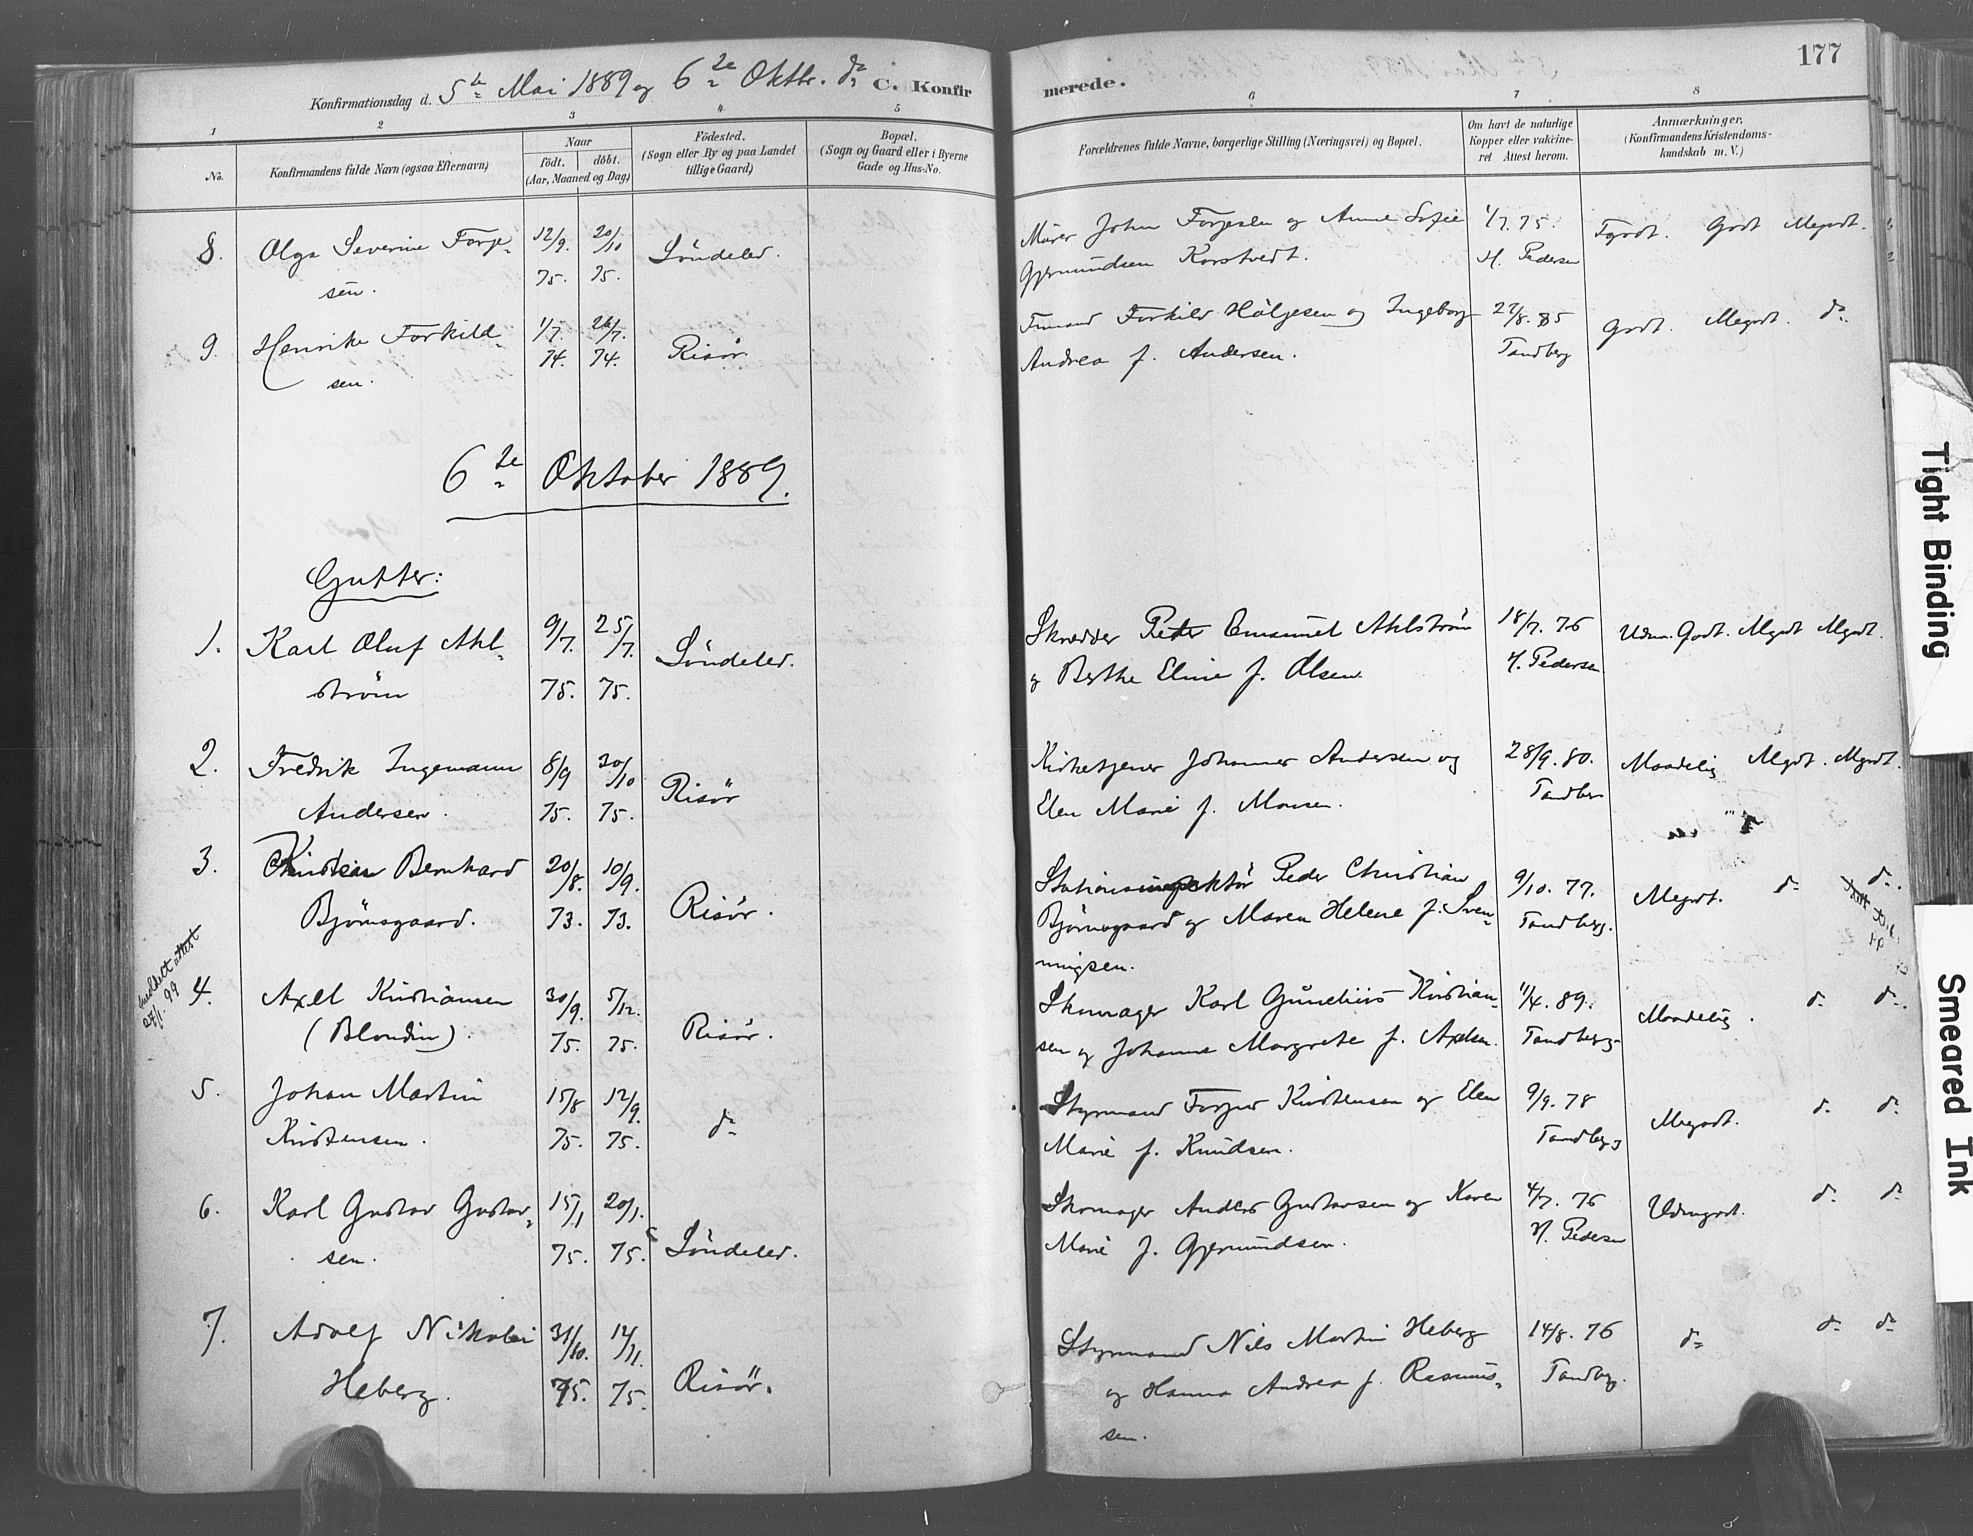 177
Konfirmationsdag d. 5te Mai 1889 og 6te Oktbr. do C. Konfir merede.
1 2 3 4 5 6 7 8
No.
Konfirmandens fulde Navn (ogsaa Efternavn)
Naar
født. døbt.
(Aar, Maaned og Dag)
Födested.
(Sogn eller By og paa Landet
tillige Gaard)
Bopæl.
(Sogn og Gaard eller i Byerne
Gade og Hus-No.
Forældrenes fulde Navne, borgerlige Stilling (Næringsvei) og Bopæl.
Om havt de naturlige
Kopper eller vakcine-
ret Attest herom.
Anmærkninger.
(Konfirmandens Kristendoms-
kundskab m. V.)
8. Olga Severine Torje- 12/9. 20/10 Söndeled. Murer John Torjesen og Anne Sofie 1/7. 75. Tgodt. Godt Megodt.
sen. 75. 75. Gjermundsen Korstvedt. H. Pedersen
9. Henrike Torkild 1/7. 26/7. Risör Tømmd Torkild Höljesen og Ingeborg 27/8. 85 Godt. Megodt. do
sen. 74. 74. Andrea f. Andersen. Tandberg
6te Oktober 1889.
Gutter:
1. Karl Oluf Ahl- 9/7. 25/7. Söndeled. Skrædder Peder Emanuel Ahlström 18/7. 76 Udm. Godt. Mgodt Mgodt.
ström 75. 75. og Berthe Eline f. Olsen H. Pedersen
2. Fredrik Ingemann 8/9 30/10 Risör Kirketjener Johannes Andersen og 28/9. 80. Maadelig Mgodt. Mgodt.
Andersen. 75. 75. Elen Marie f. Monsen. Tandberg
3. Christian Bernhard 20/8. 10/9. Risör. Stationsinspektör Peder Christian 9/10. 77. Megodt. do do.
Björnsgaard. 73. 73. Björnsgaard og Maren Helene f. Sven- Tandberg.
ningsen.
meldelt attest
27/1. 99
4. Axel Kristiansen 30/9. 5/12. Risör. Skomager Karl Gunelius Kristian- 11/4. 89. Maadelig. do do.
(Blondin). 75. 75. sen og Johanne Margrete f. Axelsen. Tandberg
5. Johan Martin 15/8 12/9. do Styrmand Torjus Kristensen og Elen 9/9. 78 Megodt. do do
Kristensen. 75. 75. Marie f. Knudsen. Tandberg
6. Karl Gustav Gustav- 15/1 20/1. Söndeled. Skomager Anders Gustavsen og Karen 4/7. 76 Udmgodt. do do
sen. 75. 75. Marie f. Gjermundsen. H. Pedersen
7. Adolf Nikolai 31/10. 14/11. Risör. Styrmand Nils Martin Heberg 14/8. 76 do do do
Heberg. 75. 75. og Hanna Andrea f. Rasmus- Tandberg.
sen.
Tight Binding
Smeared Ink